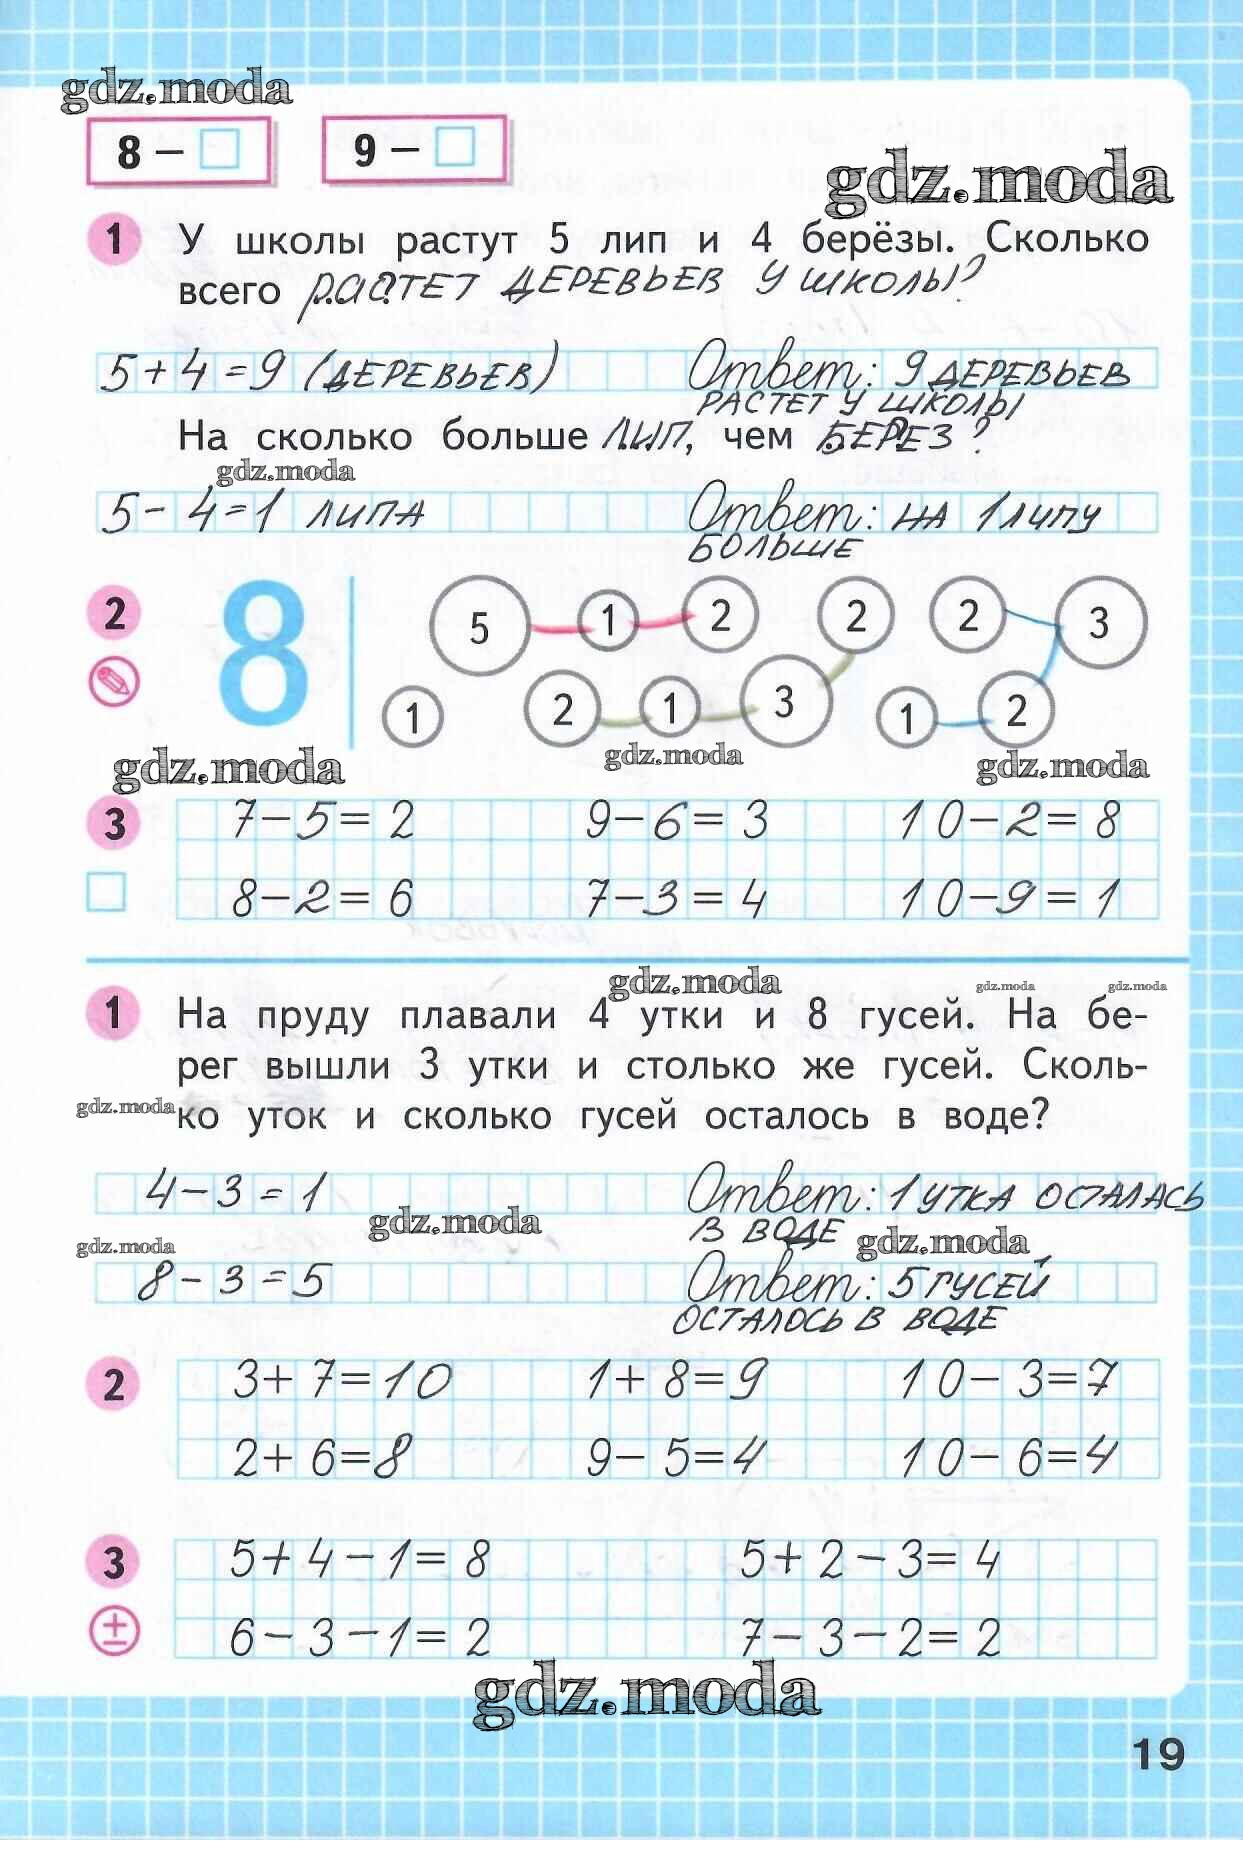 gdz.moda
8 – □ 9 – □
gdz.moda
1 У школы растут 5 лип и 4 берёзы. Сколько
всего РАСТЕТ ДЕРЕВЬЕВ У ШКОЛЫ?
5+4=9 (ДЕРЕВЬЕВ) Ответ: 9 ДЕРЕВЬЕВ
РАСТЕТ У ШКОЛЫ
На сколько больше ЛИП, чем БЕРЕЗ?
gdz.moda
5-4=1 ЛИПА Ответ: НА 1 ЛИПУ
БОЛЬШЕ
2 8 5 1 2 2 2 3
1 2 1 3 1 2
gdz.moda gdz.moda gdz.moda
3 7-5=2 9-6=3 10-2=8
8-2=6 7-3=4 10-9=1
gdz.moda gdz.moda gdz.moda
1 На пруду плавали 4 утки и 8 гусей. На бе-
рег вышли 3 утки и столько же гусей. Сколь-
gdz.moda ко уток и сколько гусей осталось в воде?
4-3=1 Ответ: 1 УТКА ОСТАЛАСЬ
gdz.moda В ВОДЕ
gdz.moda gdz.moda
8-3=5 Ответ: 5 ГУСЕЙ
ОСТАЛОСЬ В ВОДЕ
2 3+7=10 1+8=9 10-3=7
2+6=8 9-5=4 10-6=4
3 5+4-1=8 5+2-3=4
± 6-3-1=2 7-3-2=2
gdz.moda
19